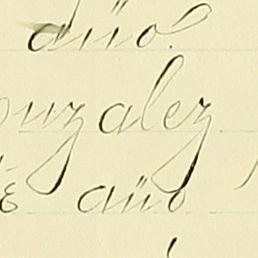 año.
onzalez
año